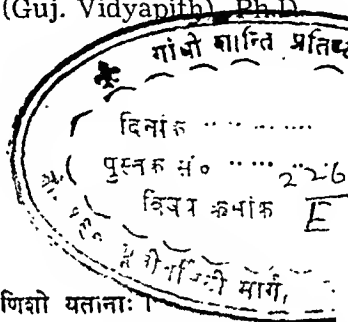 (Guj. Vidyapith), Ph.D.
गांधी शान्ति प्रतिष्
दिनांक
पुस्तक सं० 226
विषय क्रमांक E
मार्ग,
णिशो यतानाः ।